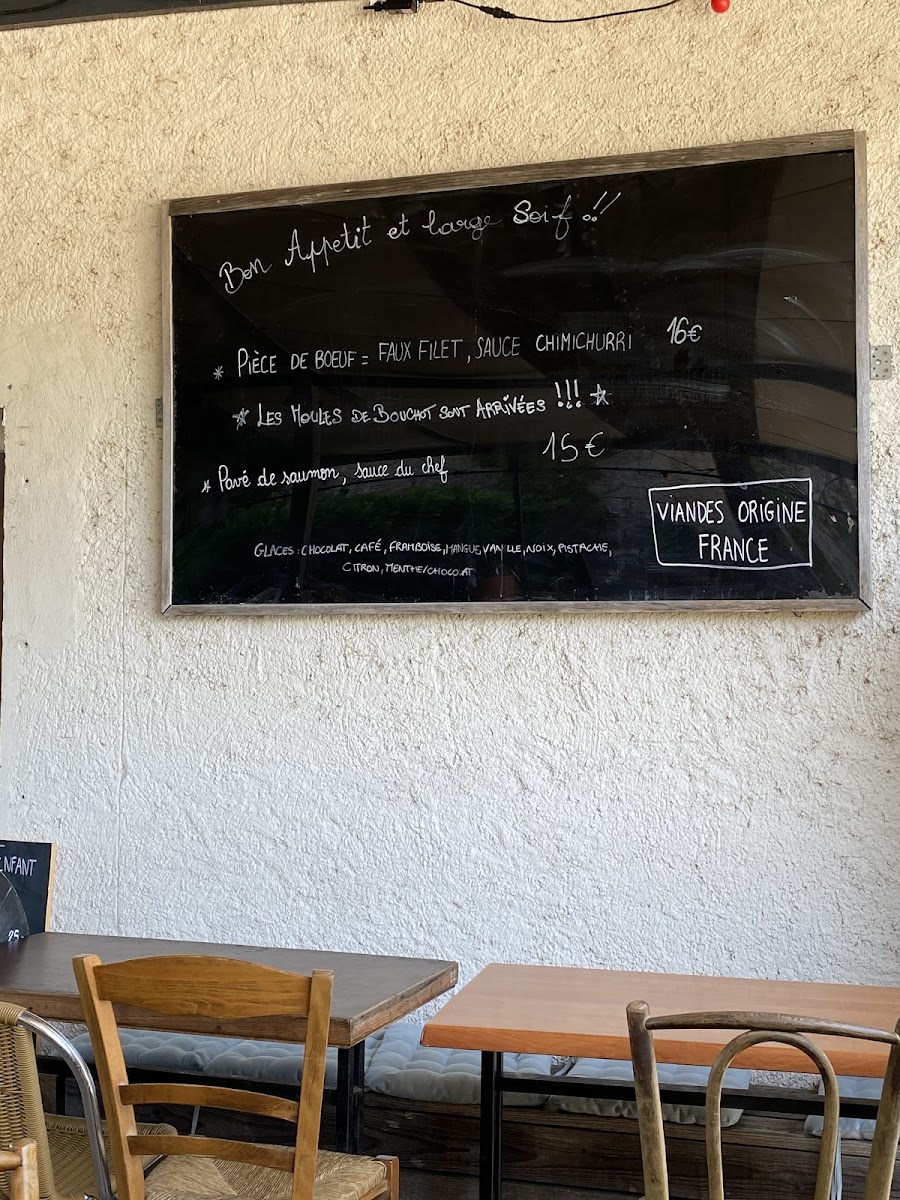 Bon Appetit et large Soif !!
* PIÈCE DE BOEUF = FAUX FILET, SAUCE CHIMICHURRI 16€
* LES MOULES DE BOUCHOT SONT ARRIVÉES !!! *
* Pavé de saumon, sauce du chef 15€
GLACES : CHOCOLAT, CAFÉ, FRAMBOISE, MANGUE, VANILLE, NOIX, PISTACHE,
CITRON, MENTHE/CHOCOLAT
VIANDES ORIGINE
FRANCE
ENFANT